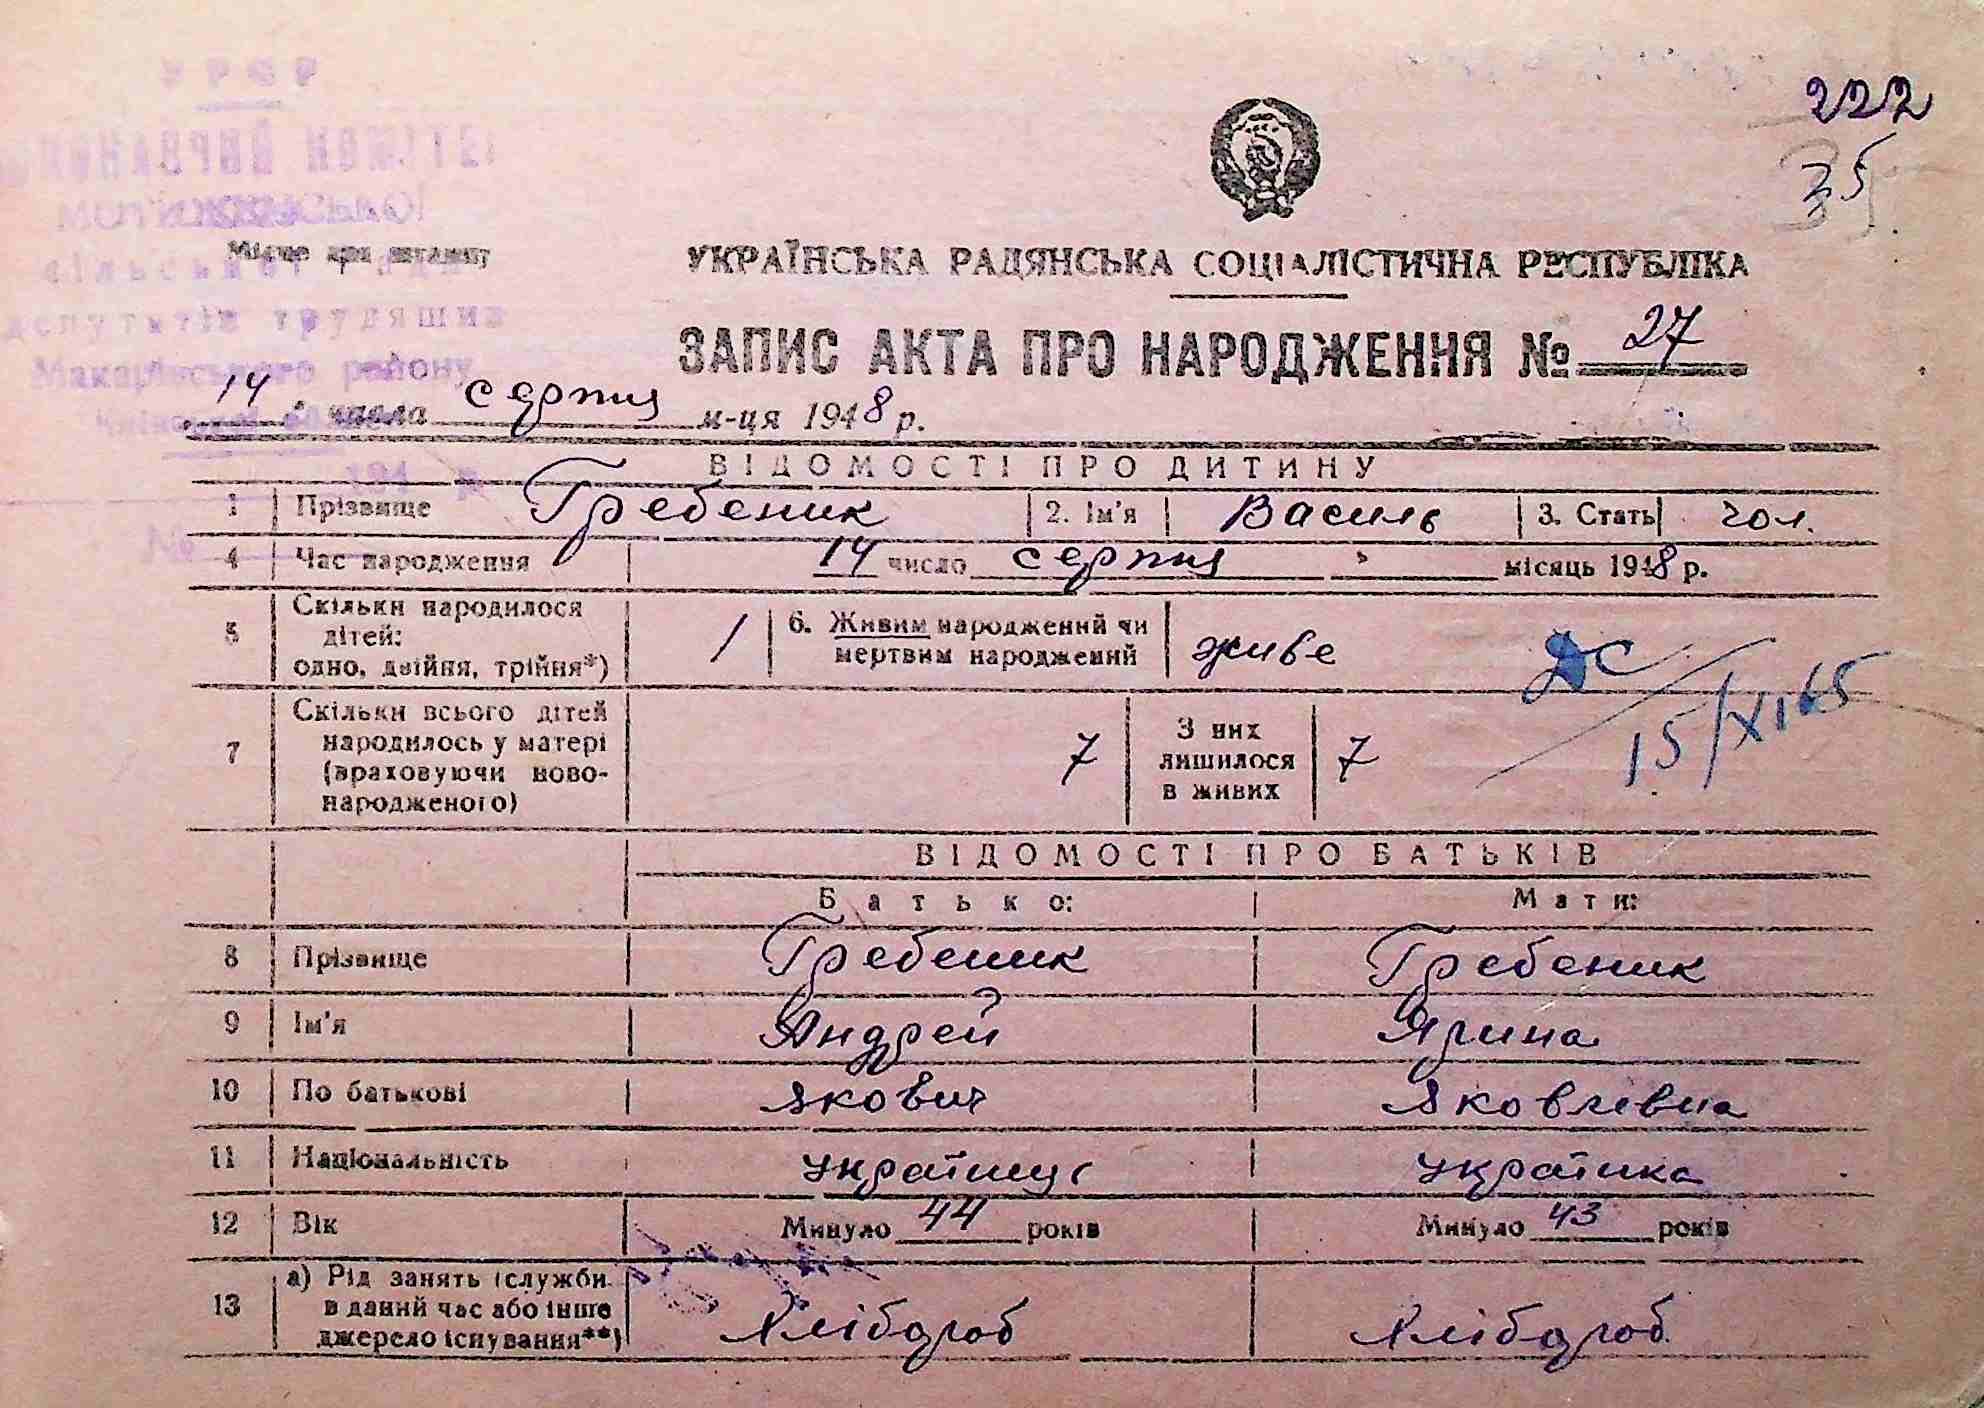 УРСР
ВИКОНАВЧИЙ КОМІТЕТ
МОТИЖИНСЬКОЇ
сільської ради
депутатів трудящих
Макарівського району
Київської області
194 р.
№
222
35
Місце для штампу
УКРАЇНСЬКА РАДЯНСЬКА СОЦІАЛІСТИЧНА РЕСПУБЛІКА
ЗАПИС АКТА ПРО НАРОДЖЕННЯ № 27
14 числа серпня м-ця 1948 р.
ВІДОМОСТІ ПРО ДИТИНУ
1 Прізвище Гребеник 2. Ім'я Василь 3. Стать чол.
4 Час народження 14 число серпня місяць 1948 р.
5 Скільки народилося дітей: одно, двійня, трійня*) 1 6. Живим народжений чи мертвим народжений живе
ДС
15/XI 65
7 Скільки всього дітей народилось у матері (враховуючи новонародженого) 7 З них лишилося в живих 7
ВІДОМОСТІ ПРО БАТЬКІВ
Батько: Мати:
8 Прізвище Гребеник Гребеник
9 Ім'я Андрей Ярина
10 По батькові Якович Яковлевна
11 Національність українц українка
12 Вік Минуло 44 років Минуло 43 років
13 а) Рід занять (служби в даний час або інше джерело існування**) Хлібороб Хлібороб